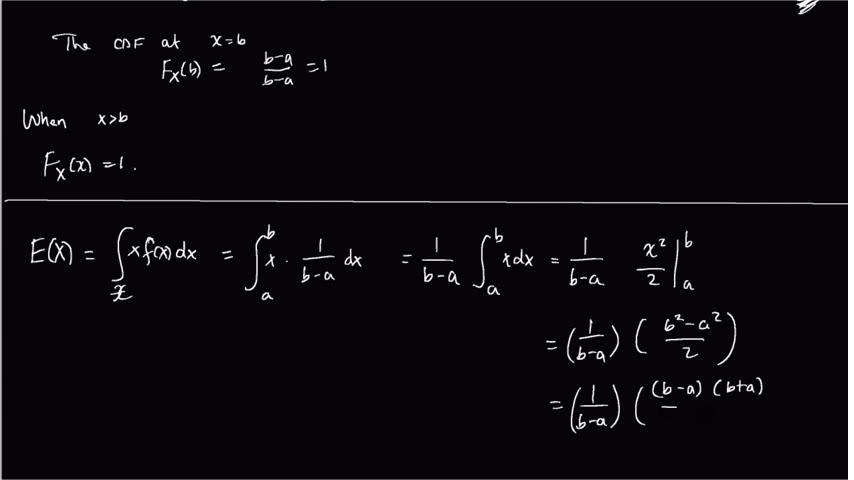 The CDF at x=b
F_X(b) = (b-a)/(b-a) = 1
When x>b
F_X(x) = 1.
E(X) = ∫_x x f(x) dx = ∫_a^b x · 1/(b-a) dx = 1/(b-a) ∫_a^b x dx = 1/(b-a) x²/2 |_a^b
= (1/(b-a)) ((b²-a²)/2)
= (1/(b-a)) ( (b-a) (b+a)